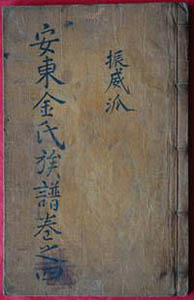 振威派
安東金氏族譜卷之四